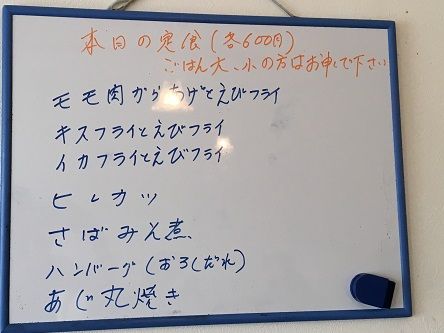 本日の定食(各600円)
ごはん大、小の方はお申し下さい
モモ肉からあげとえびフライ
キスフライとえびフライ
イカフライとえびフライ
ヒレカツ
さばみそ煮
ハンバーグ(おろしだれ)
あじ丸焼き